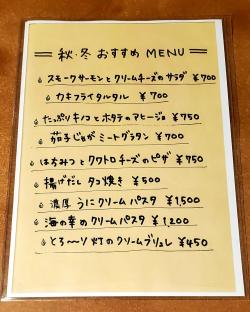 秋・冬 おすすめ MENU
スモークサーモンとクリームチーズのサラダ ¥700
カキフライタルタル ¥700
たっぷりキノコとホタテのアヒージョ ¥750
茄子じゃがミートグラタン ¥700
はちみつとクワトロチーズのピザ ¥750
揚げだしタコ焼き ¥500
濃厚うにクリームパスタ ¥1,500
海の幸のクリームパスタ ¥1,200
とろ〜り灯のクリームブリュレ ¥450